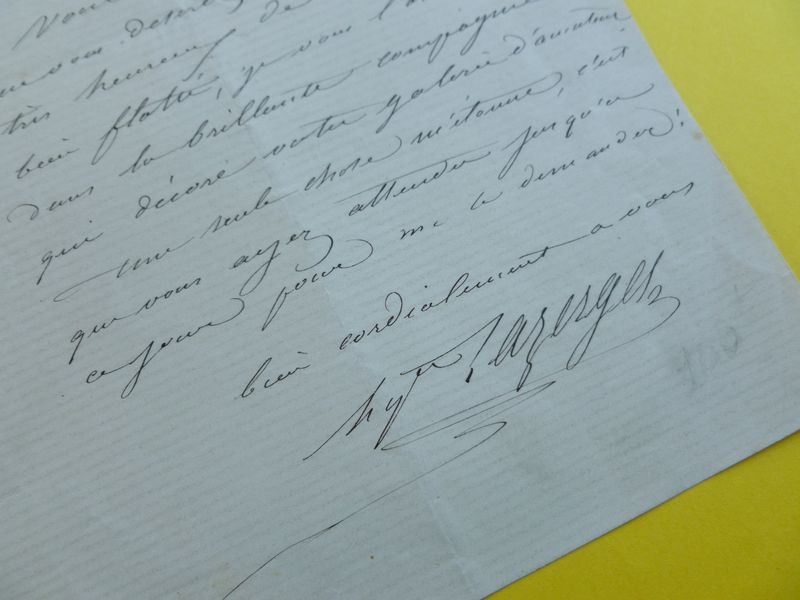 vous desirez
très heureux de
bien flatté, je vous l'a
dans la brillante compagnie
qui décore votre galerie d'amateur
une seule chose m'étonne, c'est
que vous ayez attendu jusqu'à
ce jour pour me le demander!
bien cordialement à vous
hyte Lazerges
100